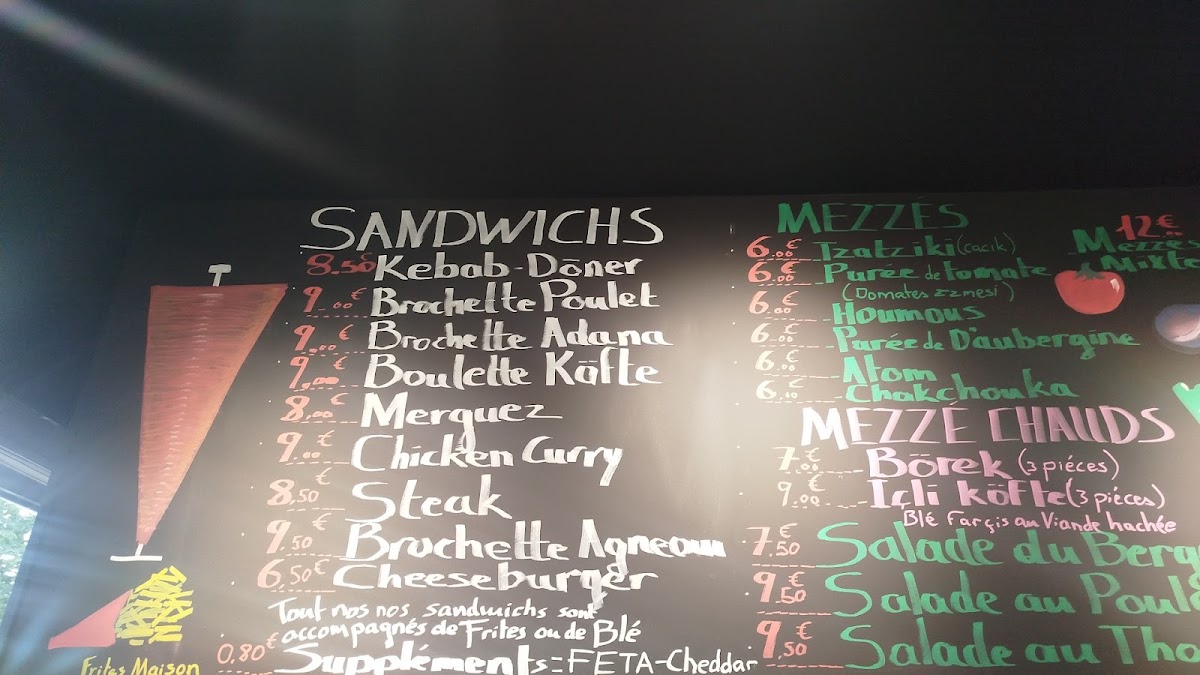 SANDWICHS
8.50€ Kebab-Döner
9.00€ Brochette Poulet
9.00€ Brochette Adana
9.00€ Boulette Köfte
8.00€ Merguez
9.00€ Chicken Curry
8.50€ Steak
9.50€ Brochette Agneau
6.50€ Cheeseburger
Tout nos nos sandwichs sont
accompagnés de Frites ou de Blé
0.80€ Suppléments = FETA-Cheddar
Frites Maison
MEZZÉS
6.00€ Tzatziki (cacik)
6.00€ Purée de tomate
(Domates zzmesi)
6.00€ Houmous
6.00€ Purée de D'aubergine
6.00€ Atom
Chakchouka
12€
Mezzés
Mixte
MEZZÉ CHAUDS
7.00€ Börek (3 piéces)
9.00€ Içli köfte (3 piéces)
Blé Farçis au Viande hachée
7.50€ Salade du
9.50€ Salade au
9.50€ Salade au